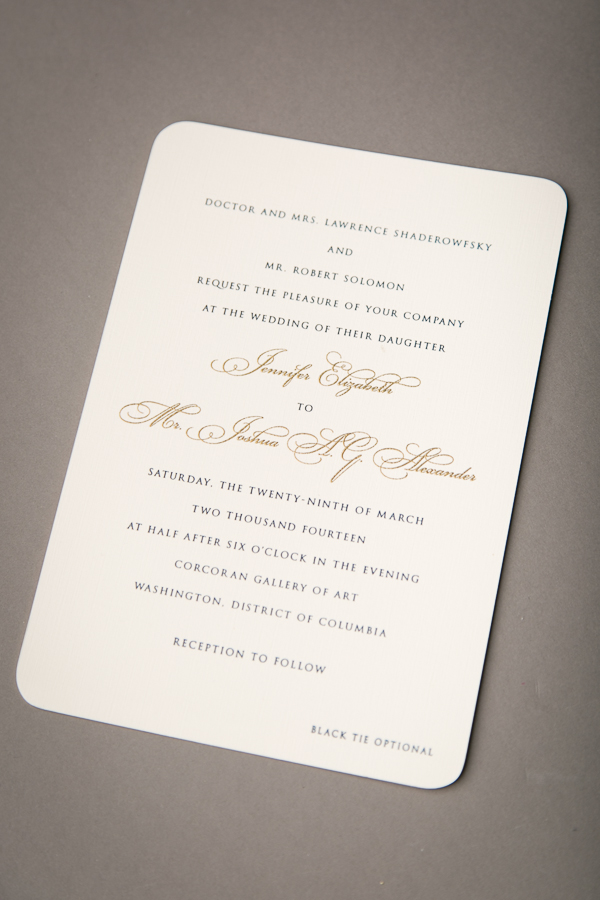 DOCTOR AND MRS. LAWRENCE SHADEROWFSKY
AND
MR. ROBERT SOLOMON
REQUEST THE PLEASURE OF YOUR COMPANY
AT THE WEDDING OF THEIR DAUGHTER
Jennifer Elizabeth
TO
Mr. Joshua A.G. Alexander
SATURDAY, THE TWENTY-NINTH OF MARCH
TWO THOUSAND FOURTEEN
AT HALF AFTER SIX O'CLOCK IN THE EVENING
CORCORAN GALLERY OF ART
WASHINGTON, DISTRICT OF COLUMBIA
RECEPTION TO FOLLOW
BLACK TIE OPTIONAL